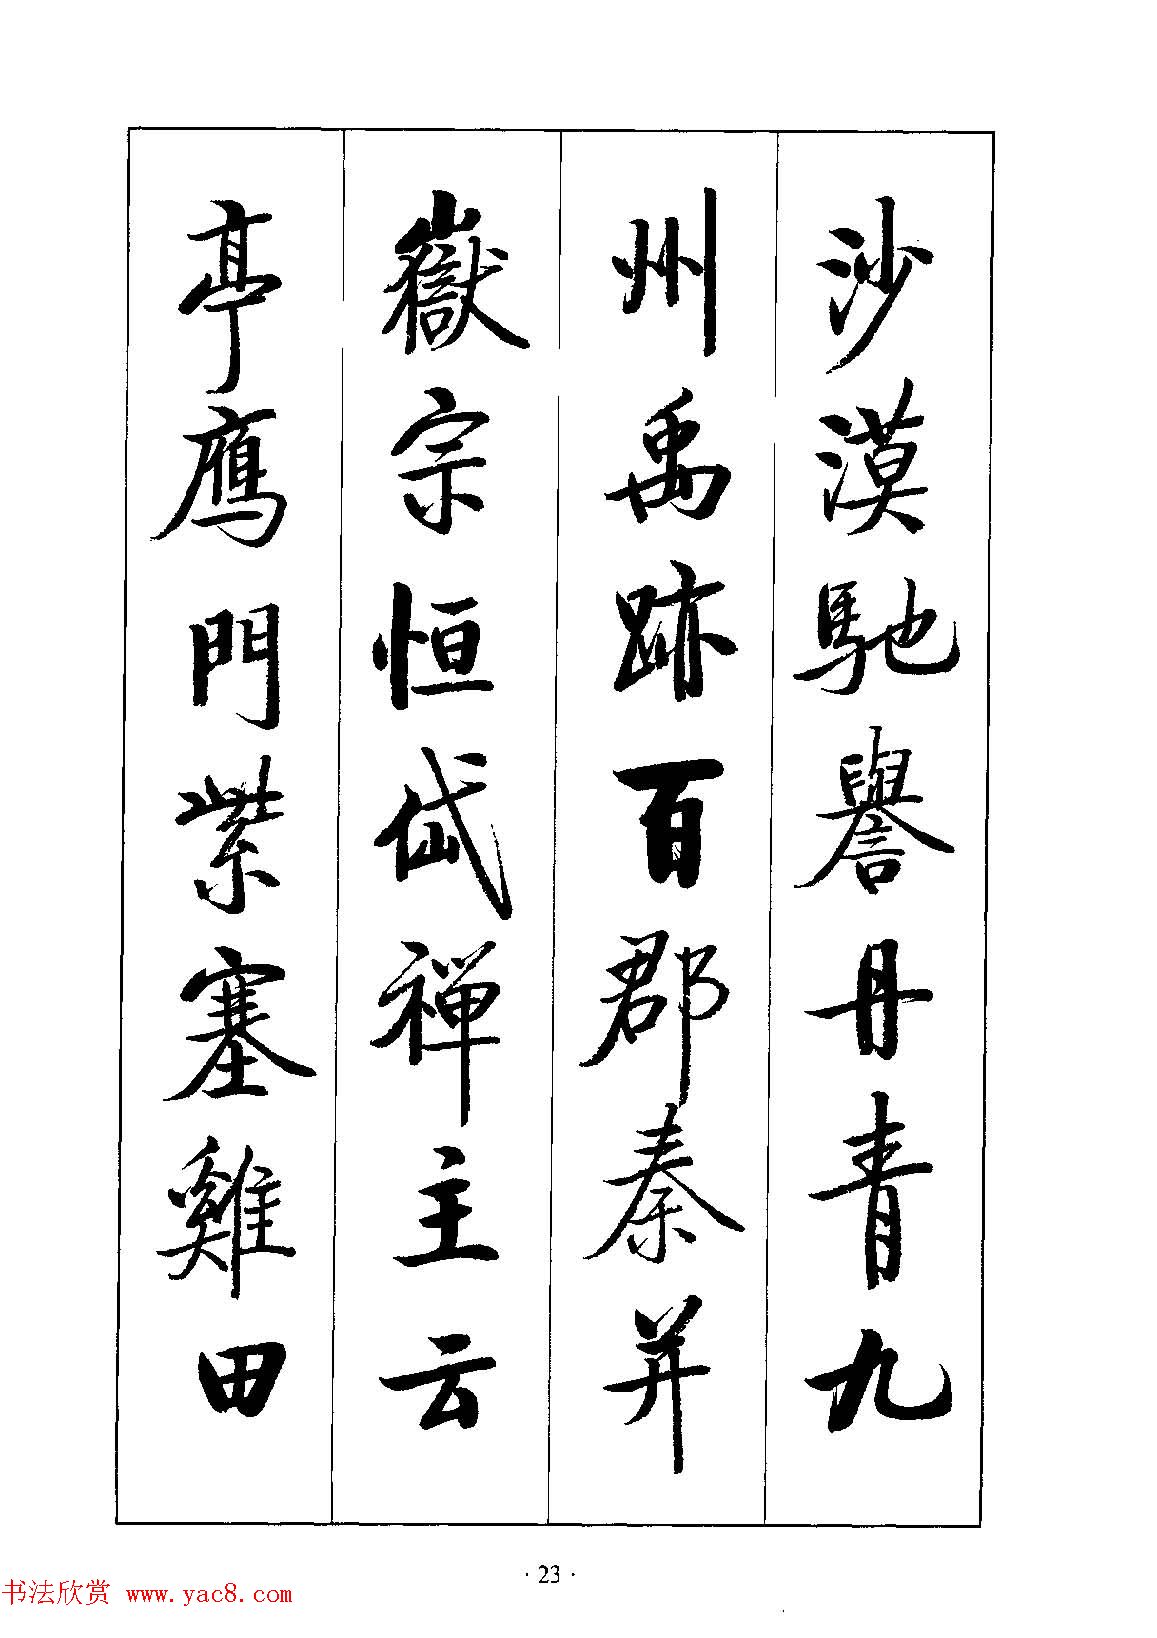 沙漠馳譽丹青九
州禹跡百郡秦并
嶽宗恒岱禪主云
亭鴈門紫塞雞田
·23·
书法欣赏 www.yac8.com